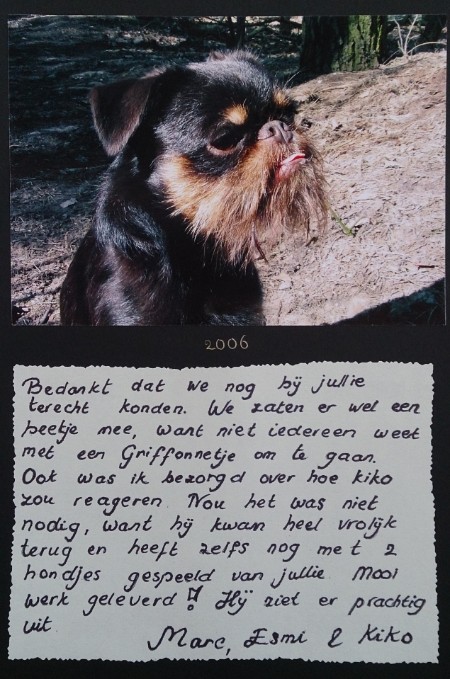 2006
Bedankt dat we nog bij jullie
terecht konden. We zaten er wel een
beetje mee, want niet iedereen weet
met een Griffonnetje om te gaan.
Ook was ik bezorgd over hoe kiko
zou reageren. Nou het was niet
nodig, want hij kwam heel vrolijk
terug en heeft zelfs nog met 2
hondjes gespeeld van jullie. Mooi
werk geleverd! Hij ziet er prachtig
uit.
Marc, Esmi & Kiko